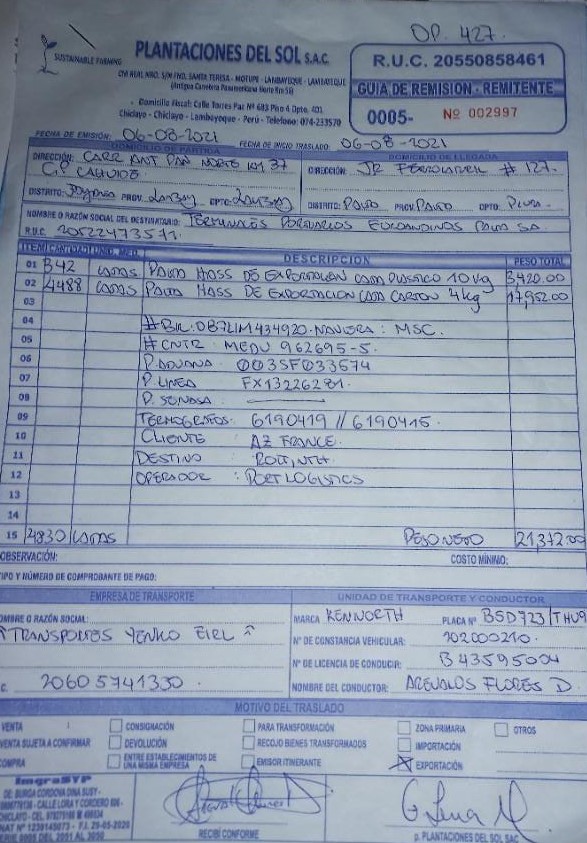 OP. 427.
SUSTAINABLE FARMING
PLANTACIONES DEL SOL S.A.C.
CAR. REAL NRO. S/N FND. SANTA TERESA - MOTUPE - LAMBAYEQUE - LAMBAYEQUE
(Antigua Carretera Panamericana Norte Km 51)
Domicilio Fiscal: Calle Torres Paz Nº 683 Piso 4 Dpto. 401
Chiclayo - Chiclayo - Lambayeque - Perú - Telefono: 074-233570
R.U.C. 20550858461
GUIA DE REMISION - REMITENTE
0005- Nº 002997
FECHA DE EMISIÓN: 06-08-2021 FECHA DE INICIO TRASLADO: 06-08-2021
DOMICILIO DE PARTIDA
DIRECCIÓN: CARR ANT PAN NORTE KM 37
DISTRITO: PROV. Lambay DPTO. Lambay
DOMICILIO DE LLEGADA
DIRECCIÓN: JR FERROCARRIL # 127.
DISTRITO: PAITA PROV. PAITA DPTO. PIURA.
NOMBRE O RAZÓN SOCIAL DEL DESTINATARIO: TERMINALES PORTUARIOS EUROANDINOS PAITA SA.
R.U.C. 20522473571
ITEM CANTIDAD UNID. MED. DESCRIPCION PESO TOTAL
01 342 CAJAS PALTA HASS DE EXPORTACION CAJA PLASTICO 10 kg 3,420.00
02 4488 CAJAS PALTA HASS DE EXPORTACION CAJA CARTON 4 kg 17,952.00
03
04 # BK: 087LIM434920. NAVIERA: MSC.
05 # CNTR: MEDU 962695-5.
06 P. ADUANA: 003SF033574
07 P. LINEA FX13226281.
08 P. SENASA: ———
09 TERMOGRAFOS: 6190419 // 6190415.
10 CLIENTE : AZ FRANCE.
11 DESTINO :
12 OPERADOR : PORT LOGISTICS
13
14
15 4830 CAJAS PESO NETO 21,372.00
OBSERVACIÓN: COSTO MÍNIMO:
TIPO Y NÚMERO DE COMPROBANTE DE PAGO:
EMPRESA DE TRANSPORTE
NOMBRE O RAZÓN SOCIAL:
"TRANSPORTES YENKO EIRL"
C. 20605741330
UNIDAD DE TRANSPORTE Y CONDUCTOR
MARCA KENWORTH PLACA Nº B5D923/THU9
Nº DE CONSTANCIA VEHICULAR: 202000210.
Nº DE LICENCIA DE CONDUCIR: B43595004
NOMBRE DEL CONDUCTOR: AREVALOS FLORES D.
MOTIVO DEL TRASLADO
VENTA CONSIGNACIÓN PARA TRANSFORMACIÓN ZONA PRIMARIA OTROS
VENTA SUJETA A CONFIRMAR DEVOLUCIÓN RECOJO BIENES TRANSFORMADOS IMPORTACIÓN
COMPRA ENTRE ESTABLECIMIENTOS DE UNA MISMA EMPRESA EMISOR ITINERANTE X EXPORTACIÓN
ImgraSYP
DE: BURGA CORDOVA DINA SUSY -
CALLE LORA Y CORDERO
RECIBÍ CONFORME
p. PLANTACIONES DEL SOL SAC